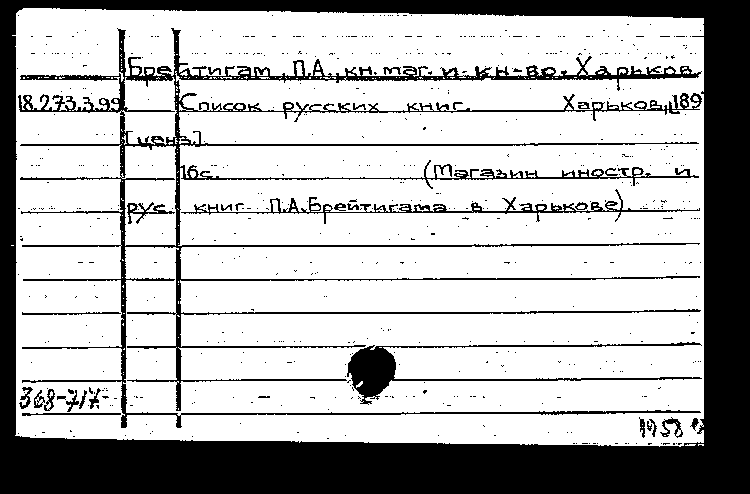 Брейтигам, П.А., кн. маг. и кн-во. Харьков
18.273.3.99. Список русских книг. Харьков, [189
[ценз.].
16с. (Магазин иностр. и
рус. книг П.А.Брейтигама в Харькове).
368-717-
1958